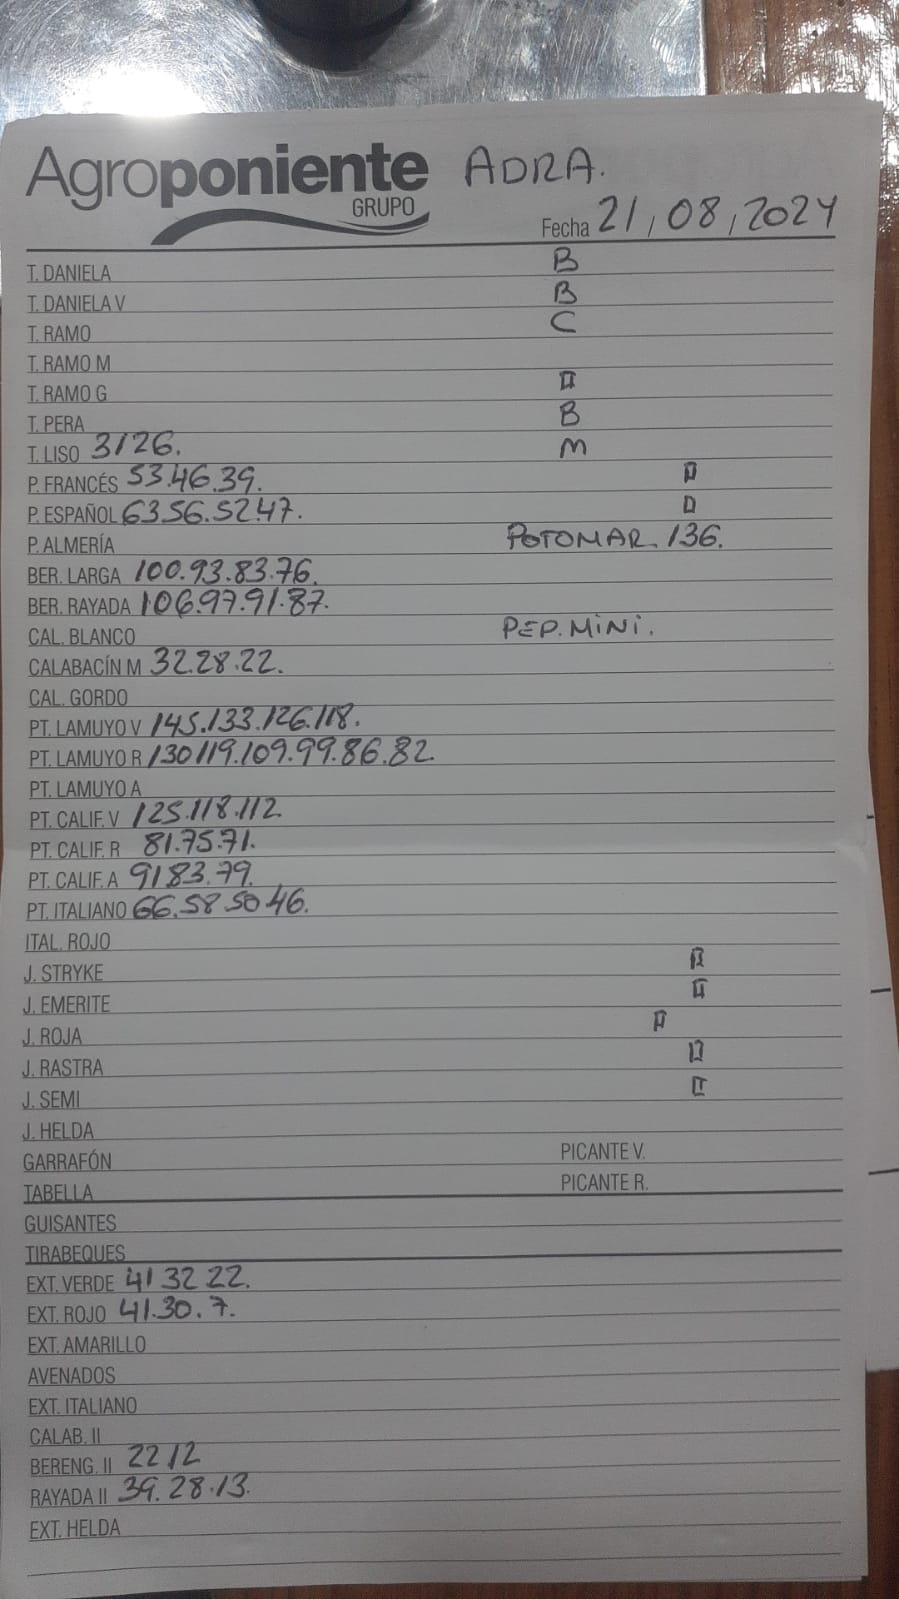 Agroponiente ADRA.
GRUPO
Fecha 21/08/2024
T. DANIELA B
T. DANIELA V B
T. RAMO C
T. RAMO M
T. RAMO G
T. PERA B
T. LISO 31 26. M
P. FRANCÉS 53.46.39.
P. ESPAÑOL 63.56.52.47.
P. ALMERÍA POTOMAR. 136.
BER. LARGA 100.93.83.76.
BER. RAYADA 106.97.91.87.
CAL. BLANCO PEP. MINI.
CALABACÍN M 32.28.22.
CAL. GORDO
PT. LAMUYO V 145.133.126.118.
PT. LAMUYO R 130 119.109.99.86.82.
PT. LAMUYO A
PT. CALIF. V 125.118.112.
PT. CALIF. R 81.75.71.
PT. CALIF. A 91 83.79.
PT. ITALIANO 66.58.50 46.
ITAL. ROJO
J. STRYKE
J. EMERITE
J. ROJA
J. RASTRA
J. SEMI
J. HELDA
GARRAFÓN PICANTE V.
TABELLA PICANTE R.
GUISANTES
TIRABEQUES
EXT. VERDE 41 32 22.
EXT. ROJO 41.30.7.
EXT. AMARILLO
AVENADOS
EXT. ITALIANO
CALAB. II
BERENG. II 22 12
RAYADA II 39.28.13.
EXT. HELDA